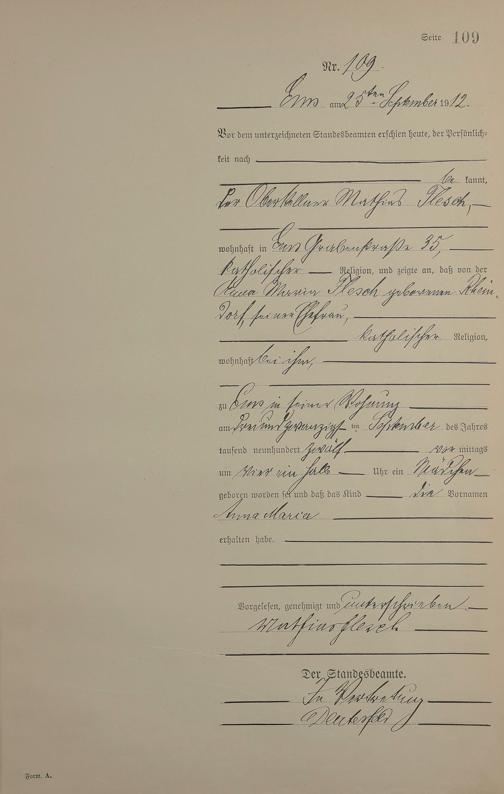 Seite 109
Nr. 109.
Ems am 25ten September 1912.
Vor dem unterzeichneten Standesbeamten erschien heute, der Persönlich-
keit nach
be kannt,
der Oberkellner Mathias Flesch,
wohnhaft in Ems Grabenstraße 35,
katholischer Religion, und zeigte an, daß von der
Anna Maria Flesch geborenen Rhein-
dorf, seiner Ehefrau,
katholischer Religion,
wohnhaft bei ihm,
zu Ems in seiner Wohnung
am dreiundzwanzigsten September des Jahres
tausend neunhundert zwölf vor mittags
um vier ein halb Uhr ein Mädchen
geboren worden sei und daß das Kind die Vornamen
Anna Maria
erhalten habe.
Vorgelesen, genehmigt und unterschrieben.
Mathias Flesch
Der Standesbeamte.
In Vertretung
Form. A.